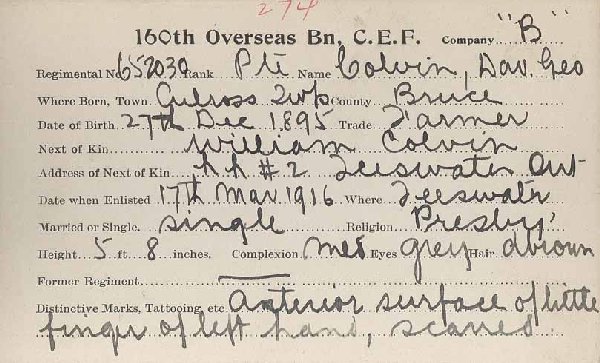 274
160th Overseas Bn, C.E.F. Company "B"
Regimental No. 652030 Rank Pte Name Colvin, Dav. Geo
Where Born, Town Culross Twp County Bruce
Date of Birth 27th Dec 1895 Trade Farmer
Next of Kin William Colvin
Address of Next of Kin R R #2 Teeswater Ont
Date when Enlisted 17th Mar 1916 Where Teeswater
Married or Single single Religion Presby
Height 5 ft. 8 inches. Complexion Med Eyes grey Hair d brown
Former Regiment —
Distinctive Marks, Tattooing, etc Anterior surface of little
finger of left hand, scared.